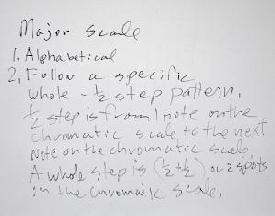 Major Scale
1. Alphabetical
2. Follow a specific
whole - ½ step pattern.
½ step is from 1 note on the
chromatic scale to the next
note on the chromatic scale.
A whole step is (½+½), or 2 spots
on the chromatic scale.